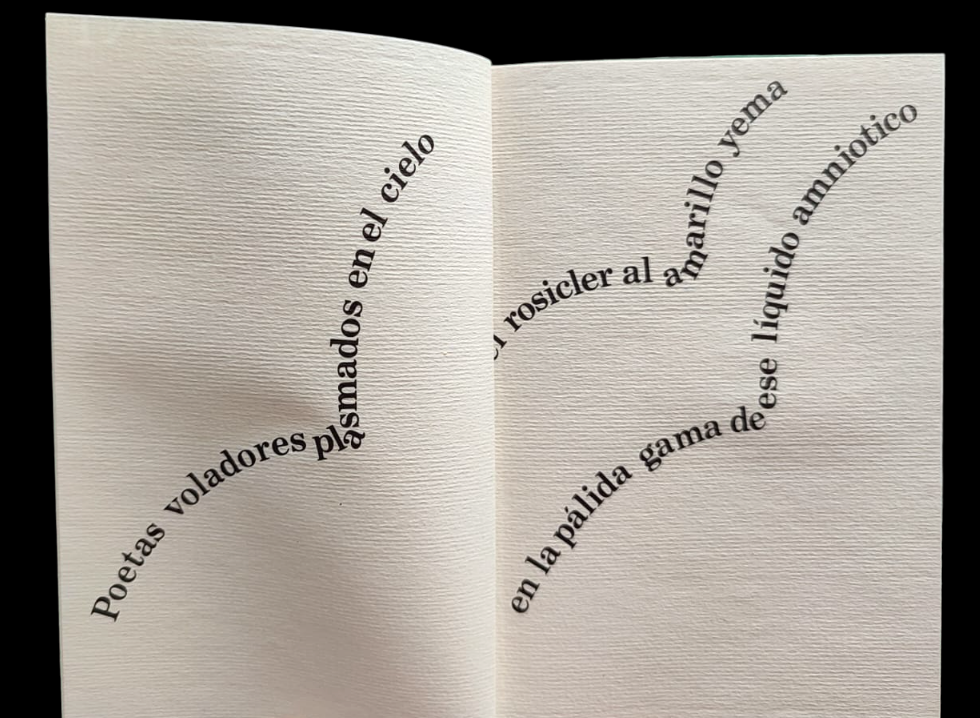 Poetas voladores plasmados en el cielo
rosicler al amarillo yema
en la pálida gama de ese líquido amniotico